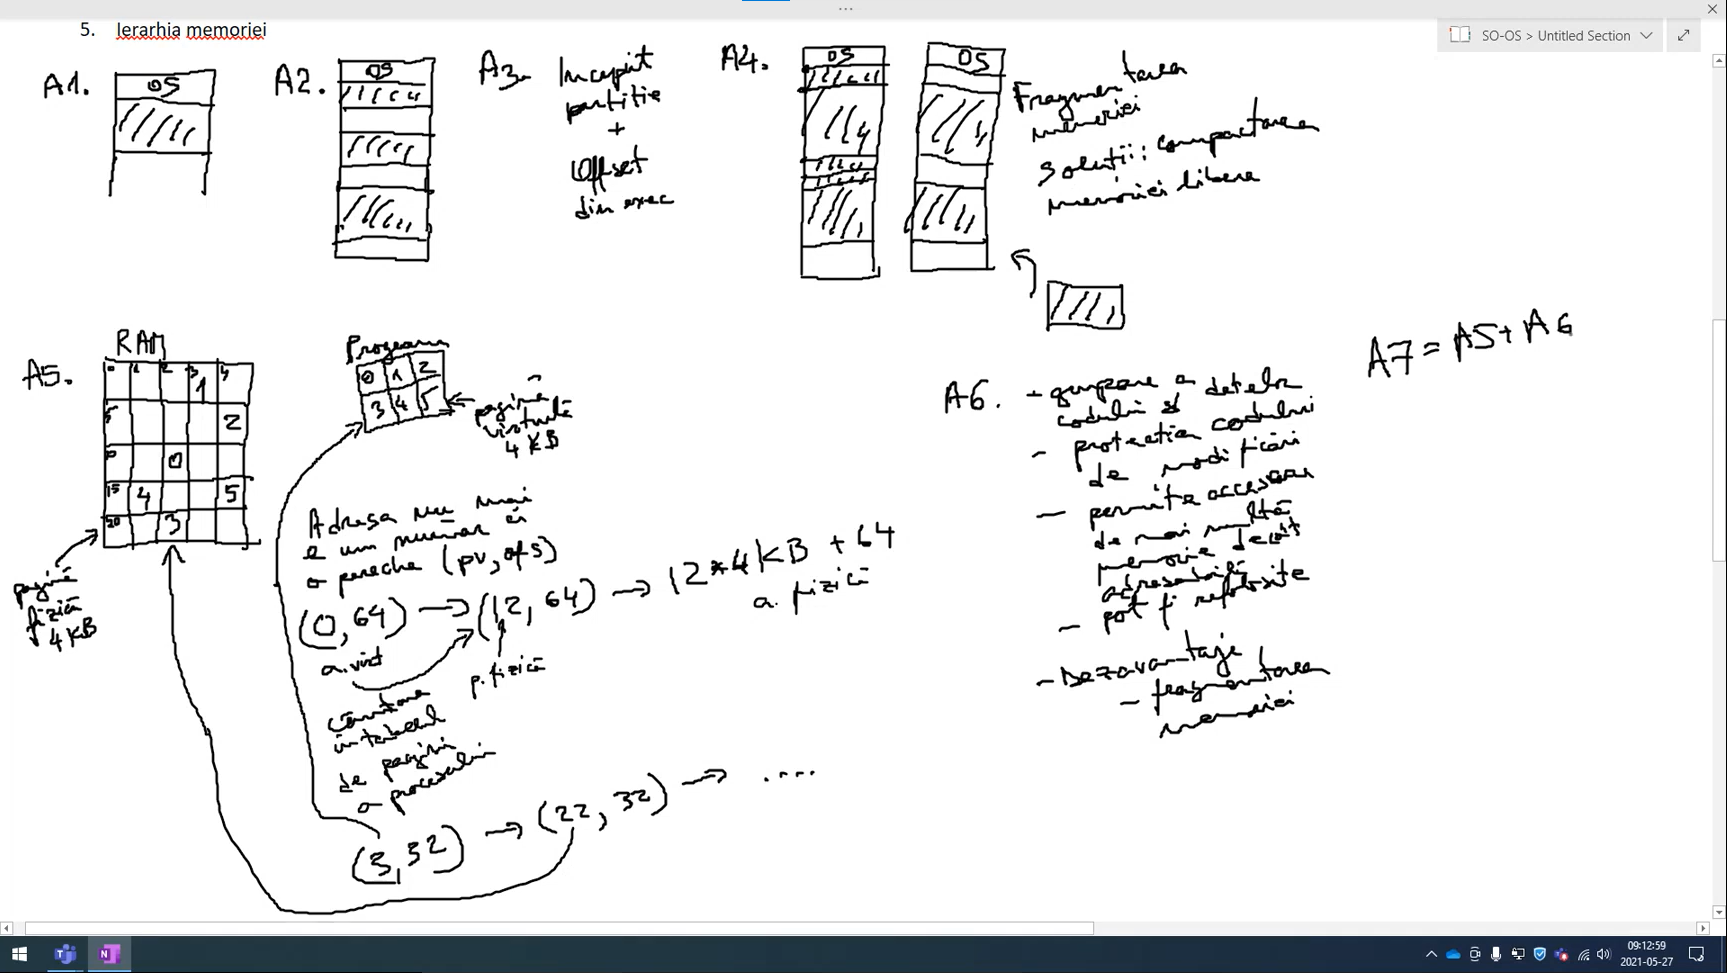 5. Ierarhia memoriei
SO-OS > Untitled Section
A1.
OS
A2.
OS
A3.
Inceput
partitie
+
Offset
din exec
A4.
OS
OS
Fragmentarea
memoriei
Solutii: compactarea
memoriei libere
A5.
RAM
0 1 2 3 1 4
5 2
10 0
15 4 5
20 3
pagină
fizică
4 KB
Program
0 1 2
3 4 5
pagină
virtuală
4 KB
Adresa nu mai
e un număr ci
o pereche (pv, ofs)
(0, 64) → (12, 64) → 12*4KB + 64
a. virt
p. fizică
a. fizică
Căutare
în tabelul
de pagini
a procesului
(3, 32) → (22, 32) → ....
A6. - grupare a datelor
codului și
- protectia codului
de modificări
- permite accesarea
de mai multă
memorie decât
adresabilă
- pot fi refolosite
- Dezavantaje
- fragmentarea
memoriei
A7 = A5 + A6
09:12:59
2021-05-27